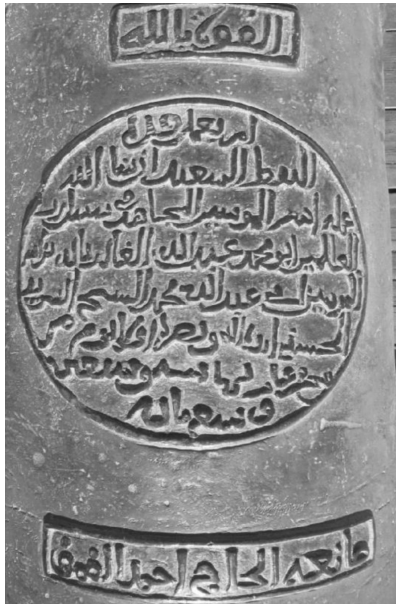 القوة بالله
امر بعمل هذا
النفط السعيد ان شا الله
امير المومنين المجاهد في سبيل رب
العالمين ابو محمد عبد الله الغالب بالله بن امير
المومنين ابي عبد الله محمد الشيخ الشريف
الحسني ايده الله ونصره
عام خمسة وسبعين
وتسعماية
صانعه الحاج احمد